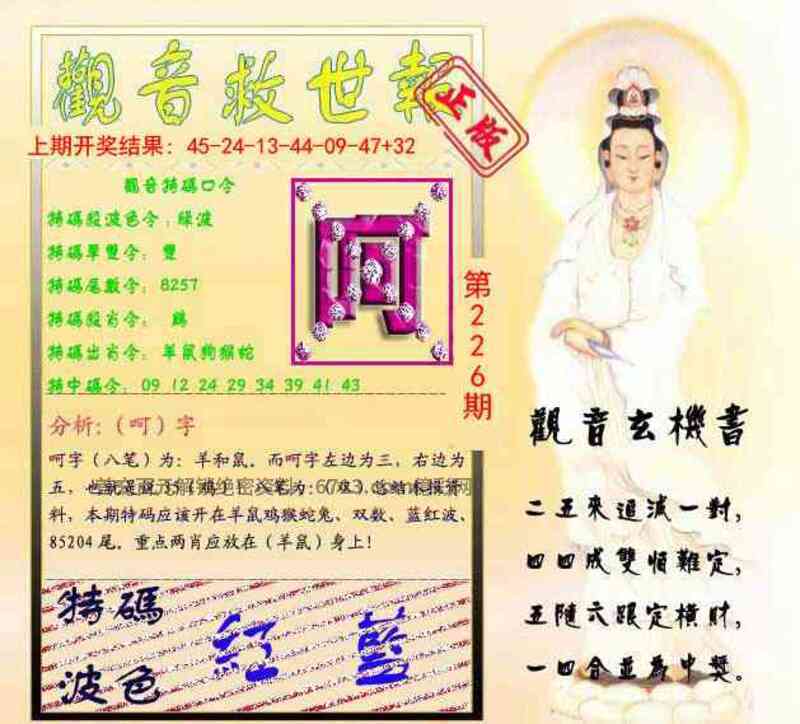 觀音救世報
正版
上期开奖结果：45-24-13-44-09-47+32
觀音特碼口令
特碼殺波色令：綠波
特碼單雙令：雙
特碼尾數令：8257
特碼殺肖令：鷄
特碼出肖令：羊鼠狗猴蛇
特中碼令：09 12 24 29 34 39 41 43
呵
第226期
分析：（呵）字
呵字（八笔）为：羊和鼠．而呵字左边为三，右边为
五，也就是说35（鸡）！八笔为：（鸡）总结根据资
料，本期特码应该开在羊鼠鸡猴蛇兔、双数、蓝红波、
85204尾．重点两肖应放在（羊鼠）身上！
特碼
波色
紅 藍
觀音玄機書
二五來追減一對，
四四成雙恒難定，
五隨六跟定橫財，
一四合並為中獎。